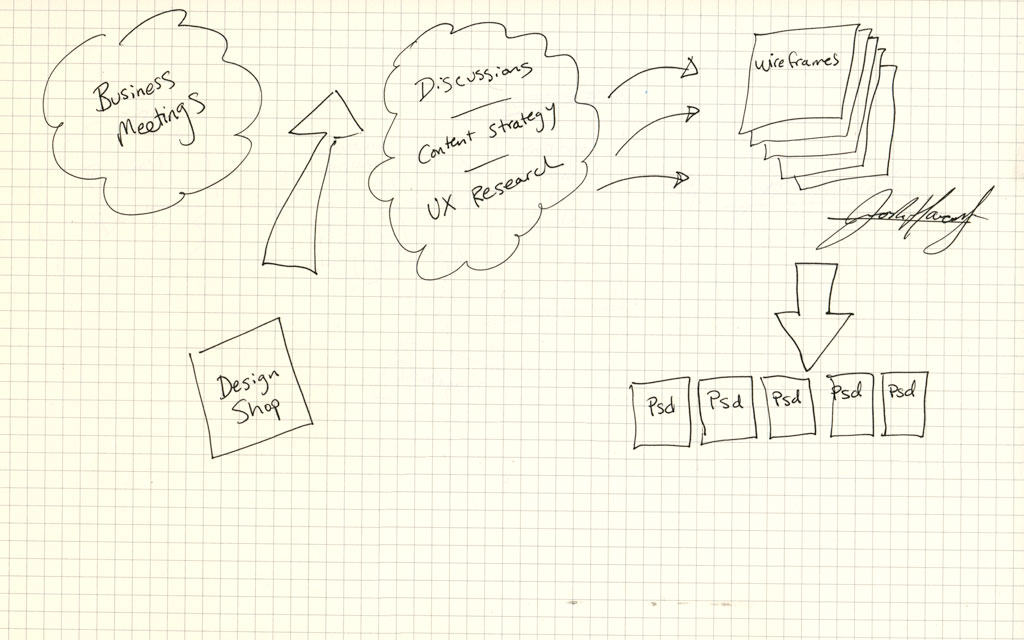 Business
Meetings
Discussions
Content Strategy
UX Research
wireframes
Design
Shop
Psd
Psd
Psd
Psd
Psd